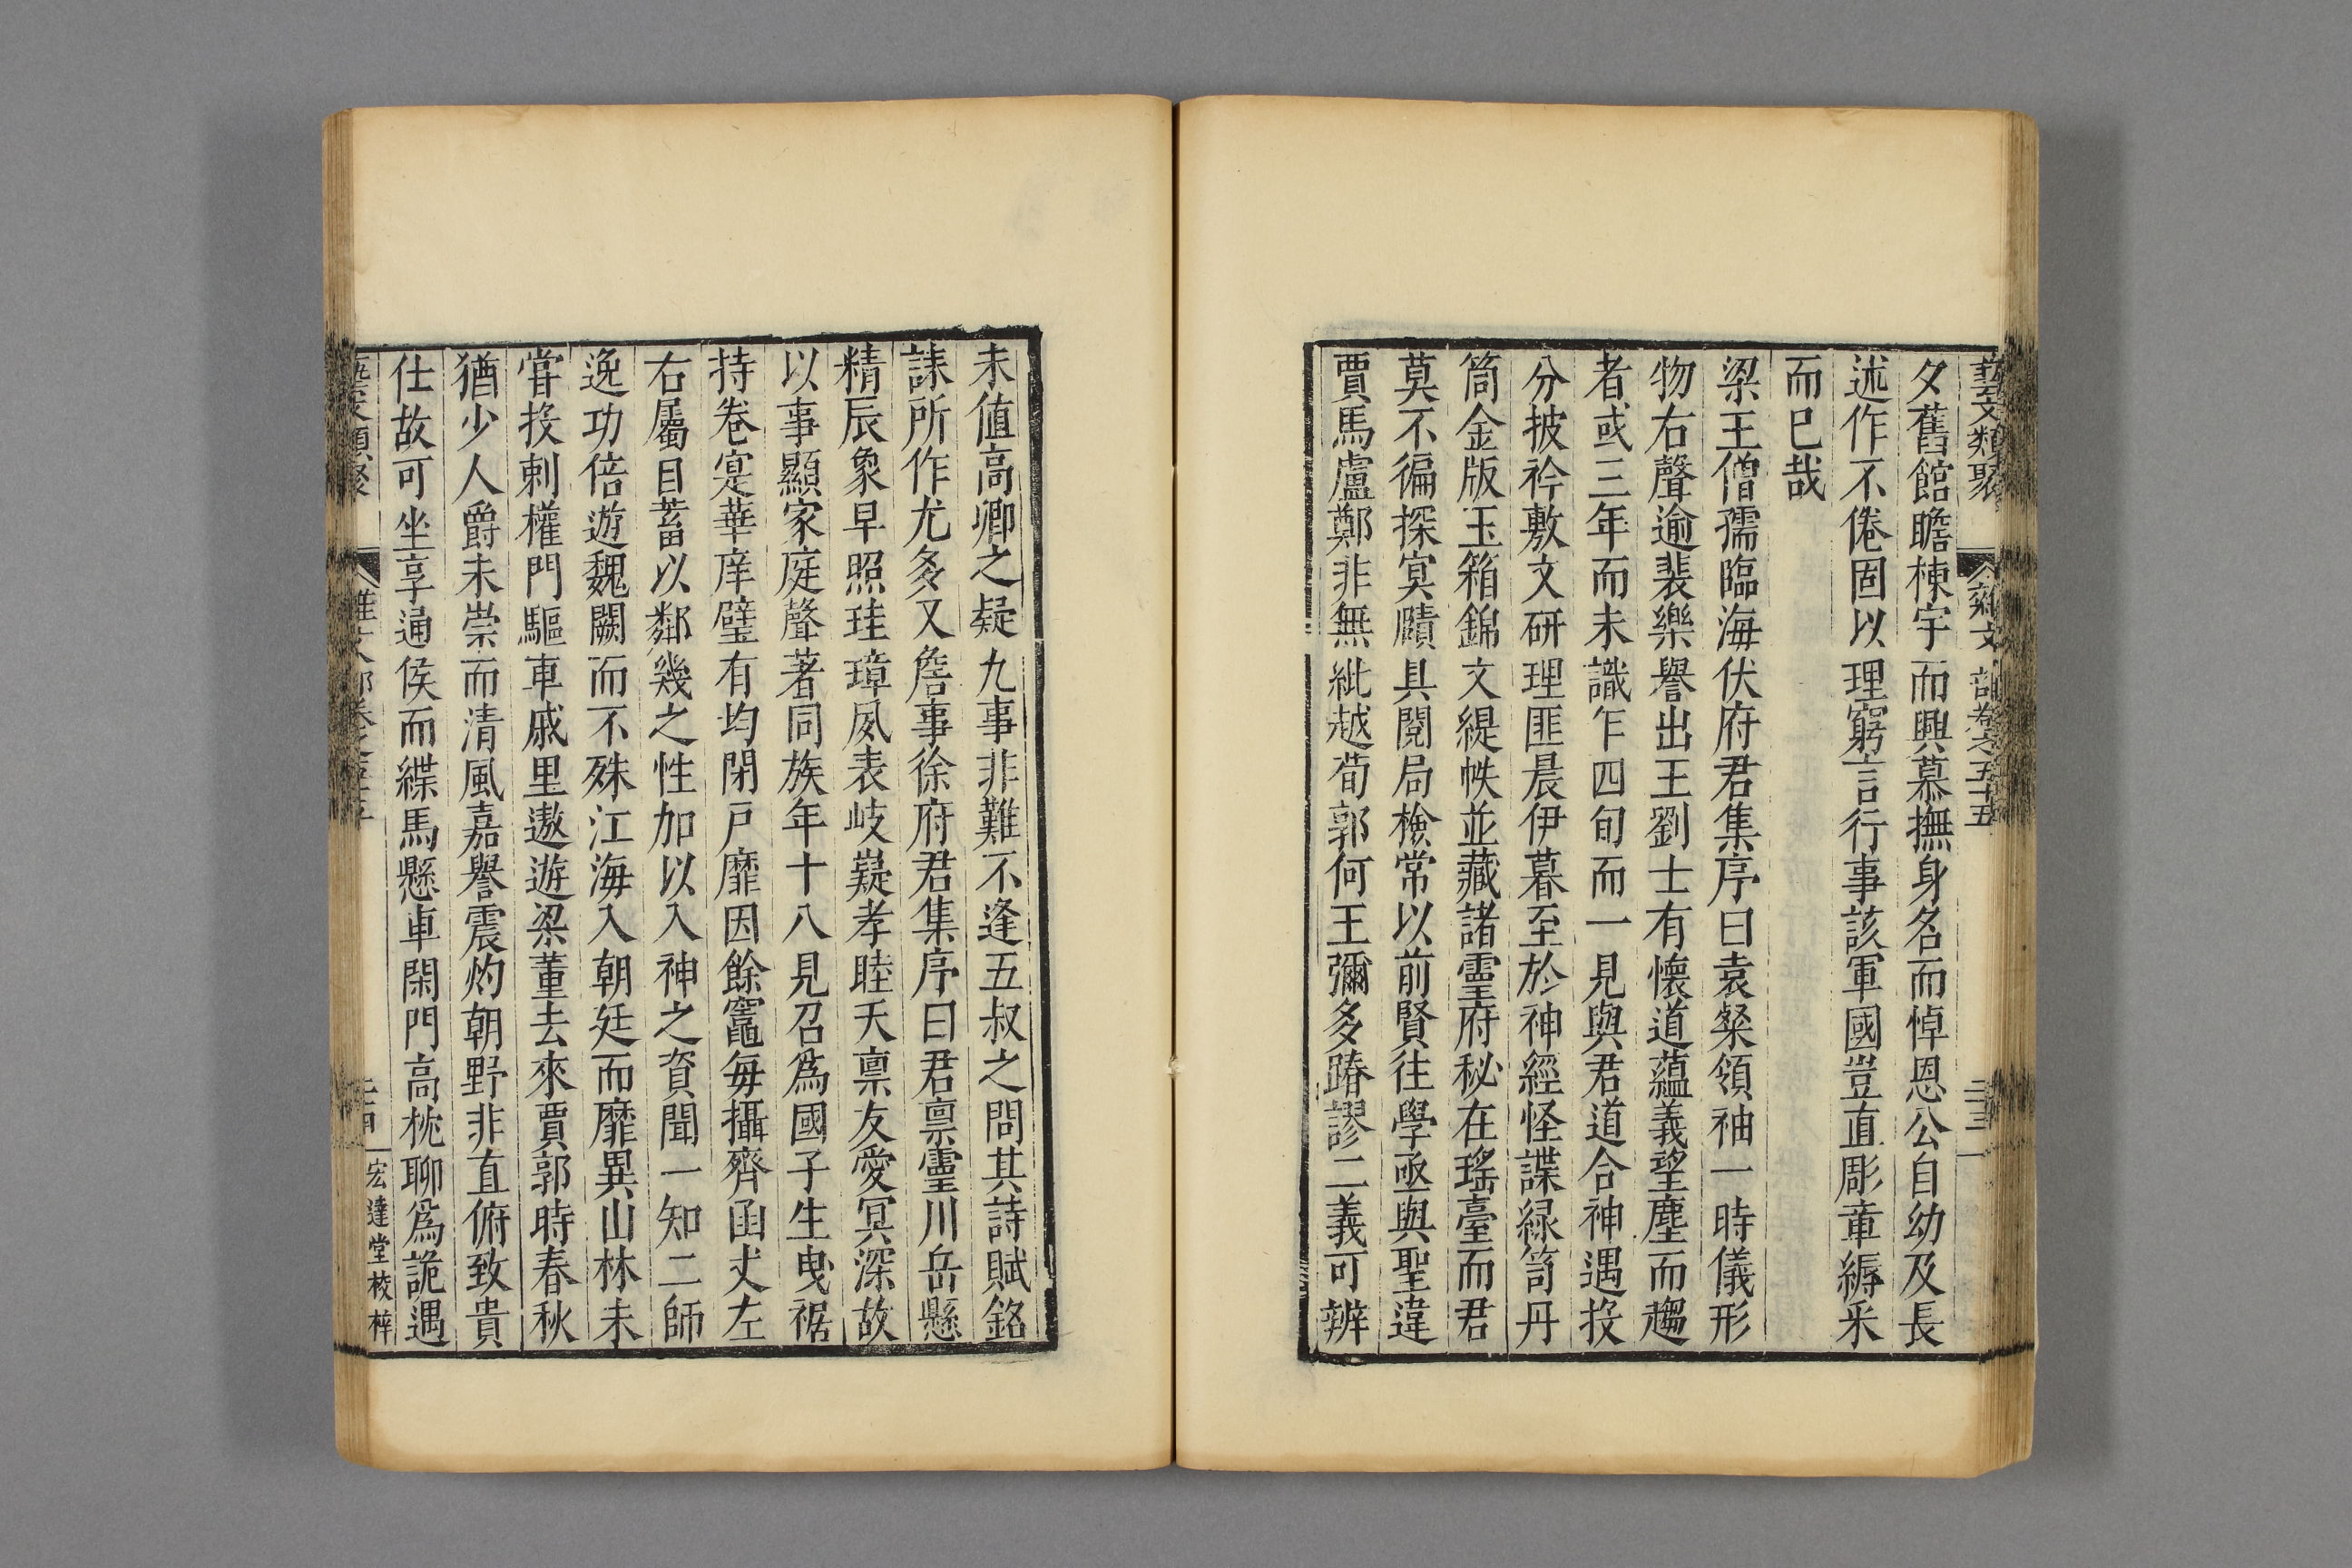 藝文類聚 雜文部卷之五十五 二十三
夕舊館瞻棟宇而興慕撫身名而悼恩公自幼及長
述作不倦固以理窮言行事該軍國豈直彫章縟采
而已哉
梁王僧孺臨海伏府君集序曰袁粲領袖一時儀形
物右聲逾裴樂譽出王劉士有懷道蘊義望塵而趨
者或三年而未識乍四旬而一見與君道合神遇投
分披衿敷文研理匪晨伊暮至於神經怪諜綠笥丹
筒金版玉箱錦文緹帙並藏諸靈府秘在瑤臺而君
莫不徧探寞賾具閱局檢常以前賢往學亟與聖違
賈馬盧鄭非無紕越荀郭何王彌多踳謬二義可辨
未值高卿之疑九事非難不逢五叔之問其詩賦銘
誄所作尤多又詹事徐府君集序曰君禀靈川岳懸
精辰象早照珪璋夙表岐嶷孝睦天禀友愛冥深故
以事顯家庭聲著同族年十八見召爲國子生曳裾
持卷寔華庠璧有均閉戸靡因餘竈每攝齊凾丈左
右屬目蓄以鄰幾之性加以入神之資聞一知二師
逸功倍遊魏闕而不殊江海入朝廷而靡異山林未
甞投刺權門驅車戚里遨遊梁董去來賈郭時春秋
猶少人爵未崇而清風嘉譽震灼朝野非直俯致貴
仕故可坐享通侯而緤馬懸車閑門高枕聊爲詭遇
藝文類聚 雜文部卷之五十五 二十四 宏達堂校梓